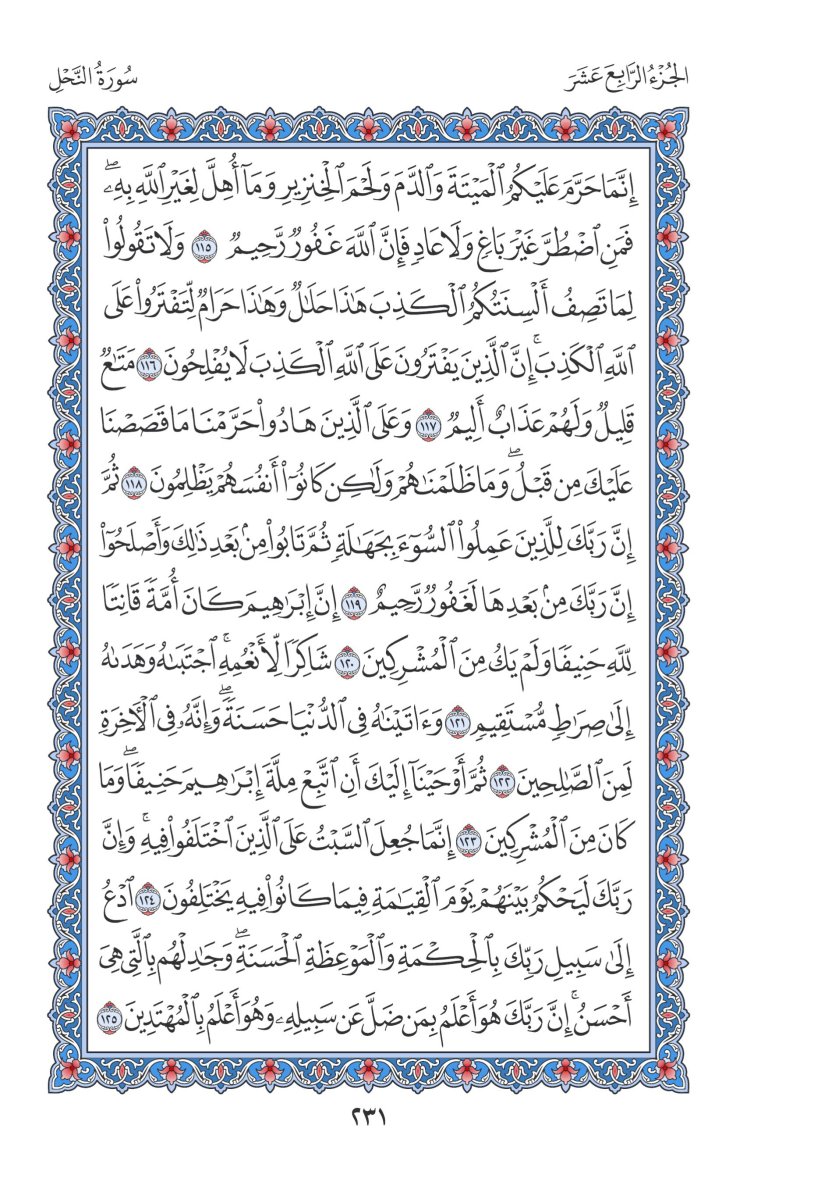 الجُزْءُ الرَّابِعَ عَشَرَ
سُورَةُ النَّحْلِ
إِنَّمَا حَرَّمَ عَلَيْكُمُ ٱلْمَيْتَةَ وَٱلدَّمَ وَلَحْمَ ٱلْخِنزِيرِ وَمَآ أُهِلَّ لِغَيْرِ ٱللَّهِ بِهِۦۖ
فَمَنِ ٱضْطُرَّ غَيْرَ بَاغٍ وَلَا عَادٍ فَإِنَّ ٱللَّهَ غَفُورٌ رَّحِيمٌ ١١٥ وَلَا تَقُولُوا۟
لِمَا تَصِفُ أَلْسِنَتُكُمُ ٱلْكَذِبَ هَٰذَا حَلَٰلٌ وَهَٰذَا حَرَامٌ لِّتَفْتَرُوا۟ عَلَى
ٱللَّهِ ٱلْكَذِبَۚ إِنَّ ٱلَّذِينَ يَفْتَرُونَ عَلَى ٱللَّهِ ٱلْكَذِبَ لَا يُفْلِحُونَ ١١٦ مَتَٰعٌ
قَلِيلٌ وَلَهُمْ عَذَابٌ أَلِيمٌ ١١٧ وَعَلَى ٱلَّذِينَ هَادُوا۟ حَرَّمْنَا مَا قَصَصْنَا
عَلَيْكَ مِن قَبْلُۖ وَمَا ظَلَمْنَٰهُمْ وَلَٰكِن كَانُوٓا۟ أَنفُسَهُمْ يَظْلِمُونَ ١١٨ ثُمَّ
إِنَّ رَبَّكَ لِلَّذِينَ عَمِلُوا۟ ٱلسُّوٓءَ بِجَهَٰلَةٍ ثُمَّ تَابُوا۟ مِنۢ بَعْدِ ذَٰلِكَ وَأَصْلَحُوٓا۟
إِنَّ رَبَّكَ مِنۢ بَعْدِهَا لَغَفُورٌ رَّحِيمٌ ١١٩ إِنَّ إِبْرَٰهِيمَ كَانَ أُمَّةً قَانِتًا
لِّلَّهِ حَنِيفًا وَلَمْ يَكُ مِنَ ٱلْمُشْرِكِينَ ١٢٠ شَاكِرًا لِّأَنْعُمِهِۚ ٱجْتَبَىٰهُ وَهَدَىٰهُ
إِلَىٰ صِرَٰطٍ مُّسْتَقِيمٍ ١٢١ وَءَاتَيْنَٰهُ فِى ٱلدُّنْيَا حَسَنَةًۖ وَإِنَّهُۥ فِى ٱلْءَاخِرَةِ
لَمِنَ ٱلصَّٰلِحِينَ ١٢٢ ثُمَّ أَوْحَيْنَآ إِلَيْكَ أَنِ ٱتَّبِعْ مِلَّةَ إِبْرَٰهِيمَ حَنِيفًاۖ وَمَا
كَانَ مِنَ ٱلْمُشْرِكِينَ ١٢٣ إِنَّمَا جُعِلَ ٱلسَّبْتُ عَلَى ٱلَّذِينَ ٱخْتَلَفُوا۟ فِيهِۚ وَإِنَّ
رَبَّكَ لَيَحْكُمُ بَيْنَهُمْ يَوْمَ ٱلْقِيَٰمَةِ فِيمَا كَانُوا۟ فِيهِ يَخْتَلِفُونَ ١٢٤ ٱدْعُ
إِلَىٰ سَبِيلِ رَبِّكَ بِٱلْحِكْمَةِ وَٱلْمَوْعِظَةِ ٱلْحَسَنَةِۖ وَجَٰدِلْهُم بِٱلَّتِى هِىَ
أَحْسَنُۚ إِنَّ رَبَّكَ هُوَ أَعْلَمُ بِمَن ضَلَّ عَن سَبِيلِهِۦ وَهُوَ أَعْلَمُ بِٱلْمُهْتَدِينَ ١٢٥
٢٣١